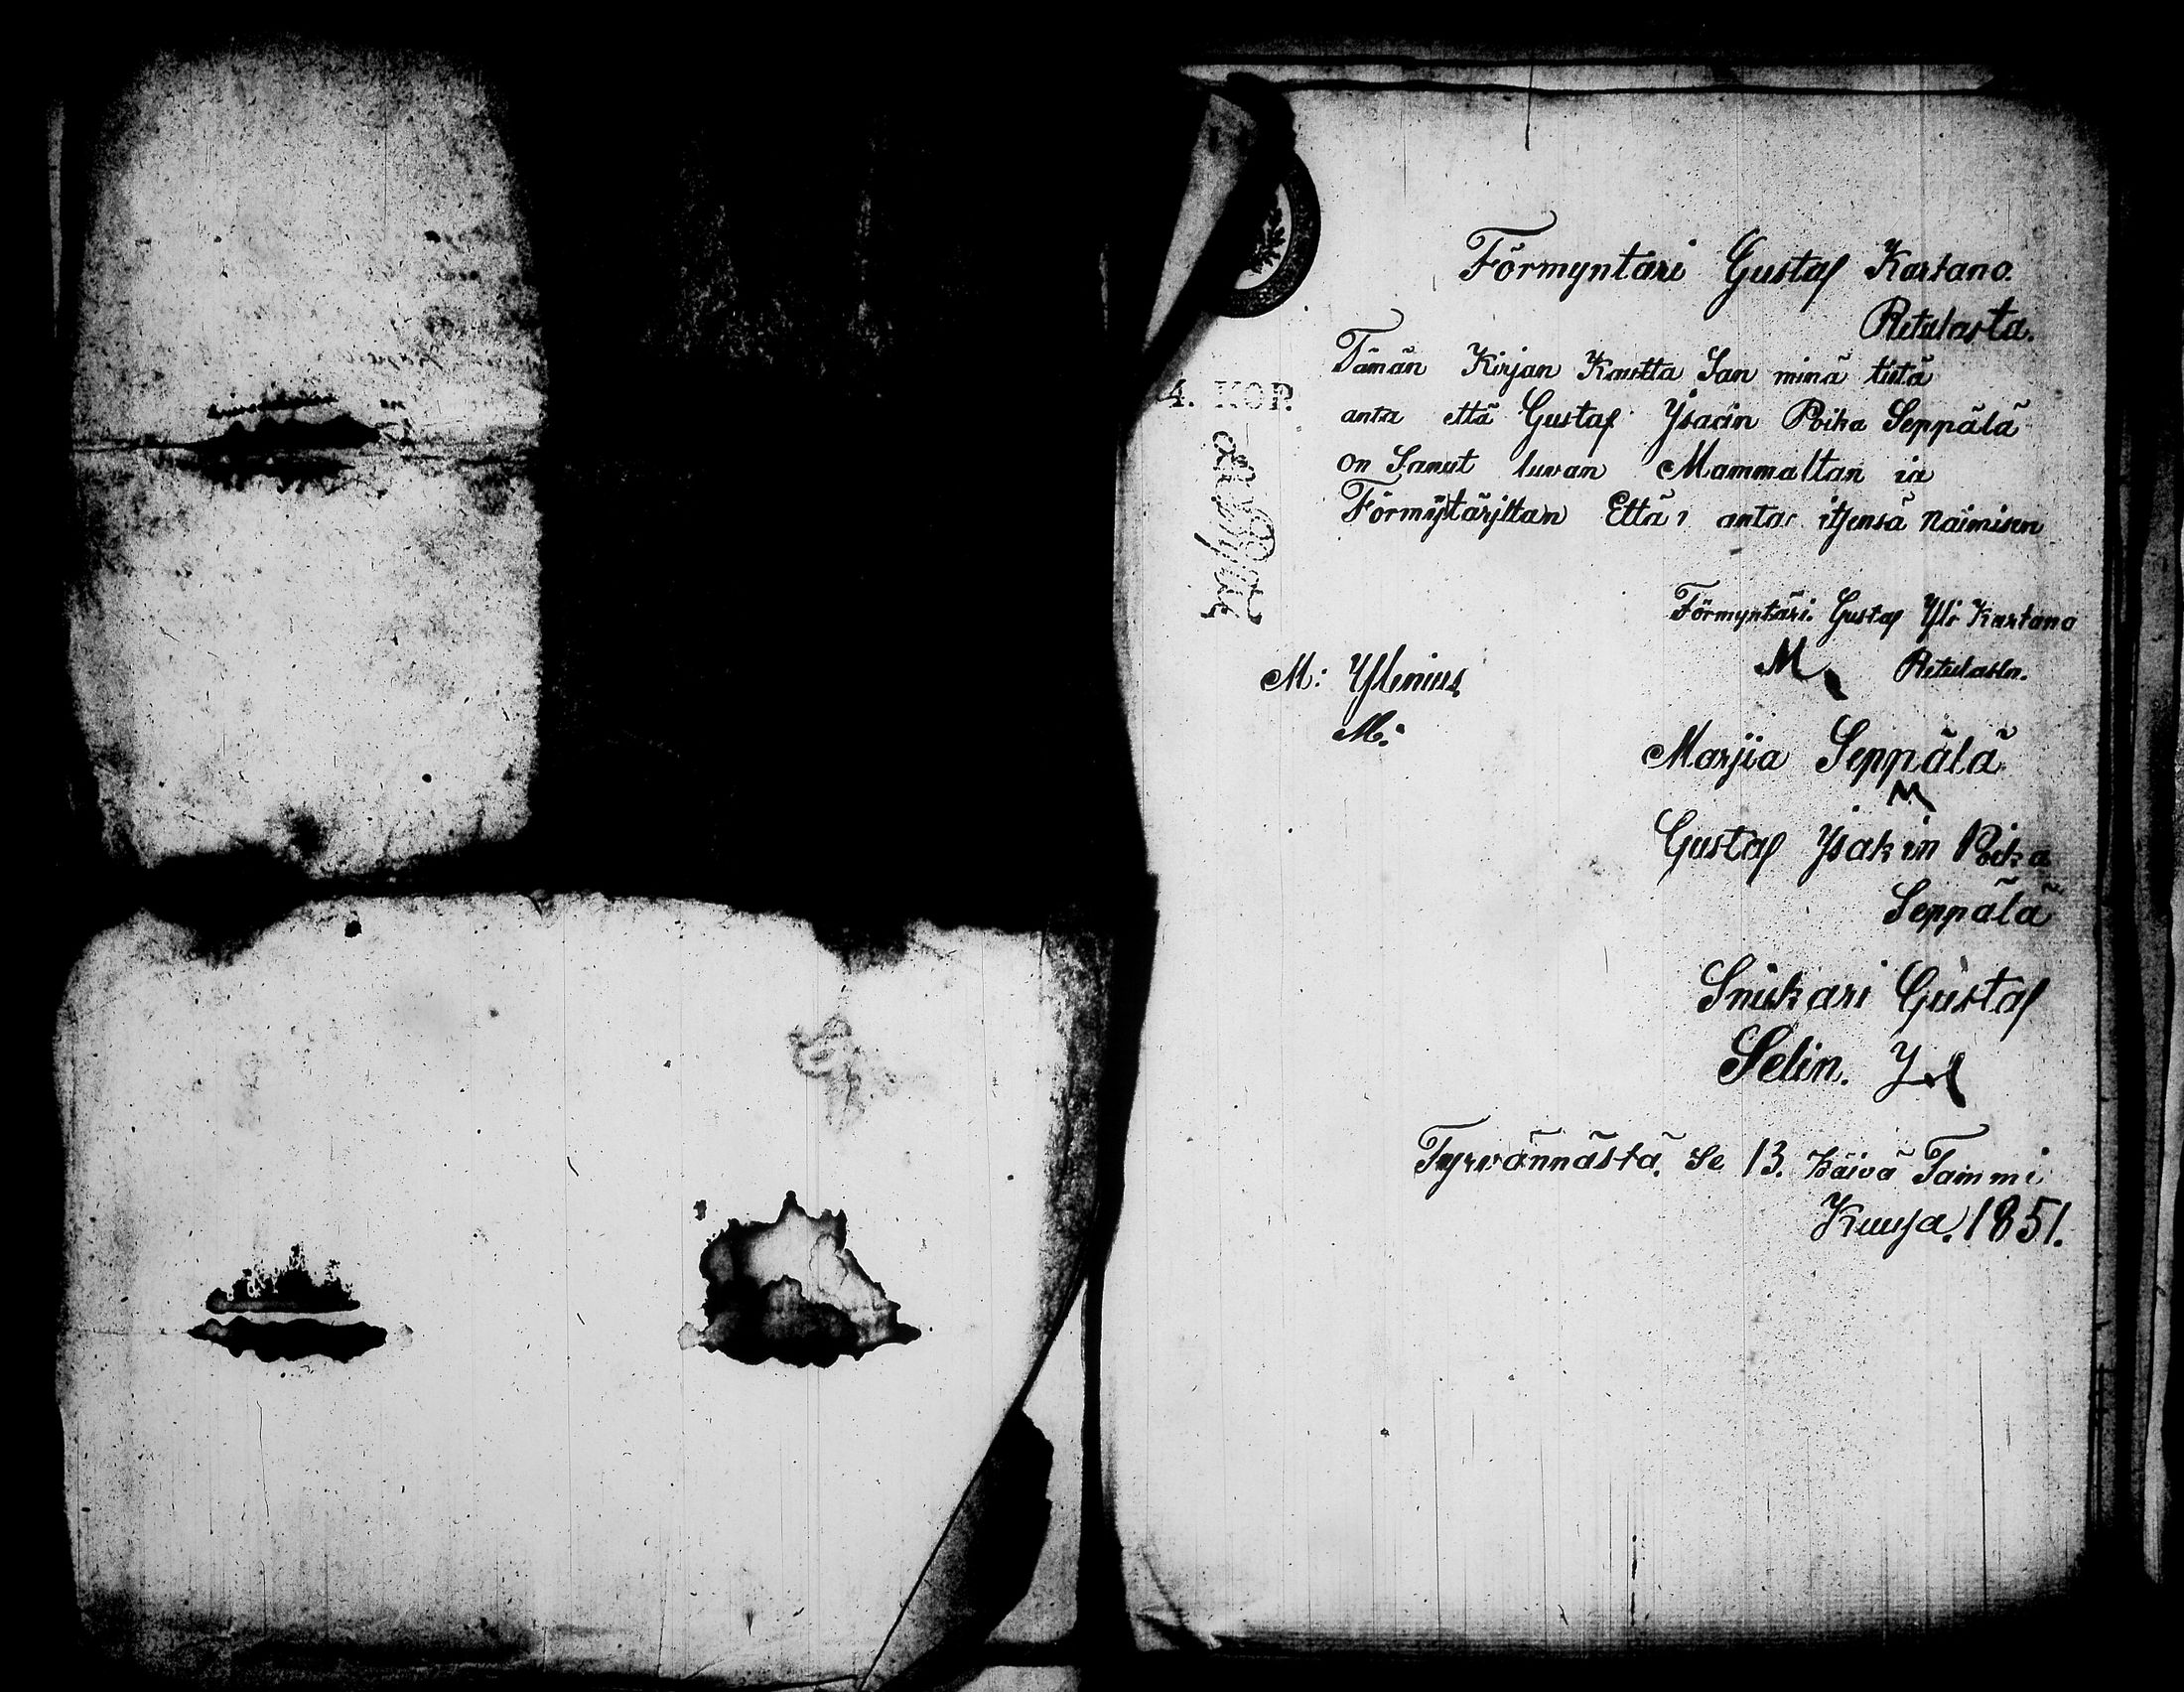 Förmyntäri Gustaf Kartano.
Ritulasta.
Tämän Kirjan Kautta San minä tiitä
4. KOP.
anta että Gustaf Ysacin Poika Seppälä
on Sanut luvan Mammaltan ia
Förmytärjltan Että antar itsensä Naimisen
Förmyntäri. Gustaf Yli Kartano
M Ritulasta.
M: Yllenius
M:
Marjia Seppälä
M
Gustaf Ysakin Poika
Seppälä
Snikari Gustaf
Selin.
Tyrvännästä. Se 13. Päivä Tammi
Kuusa. 1851.